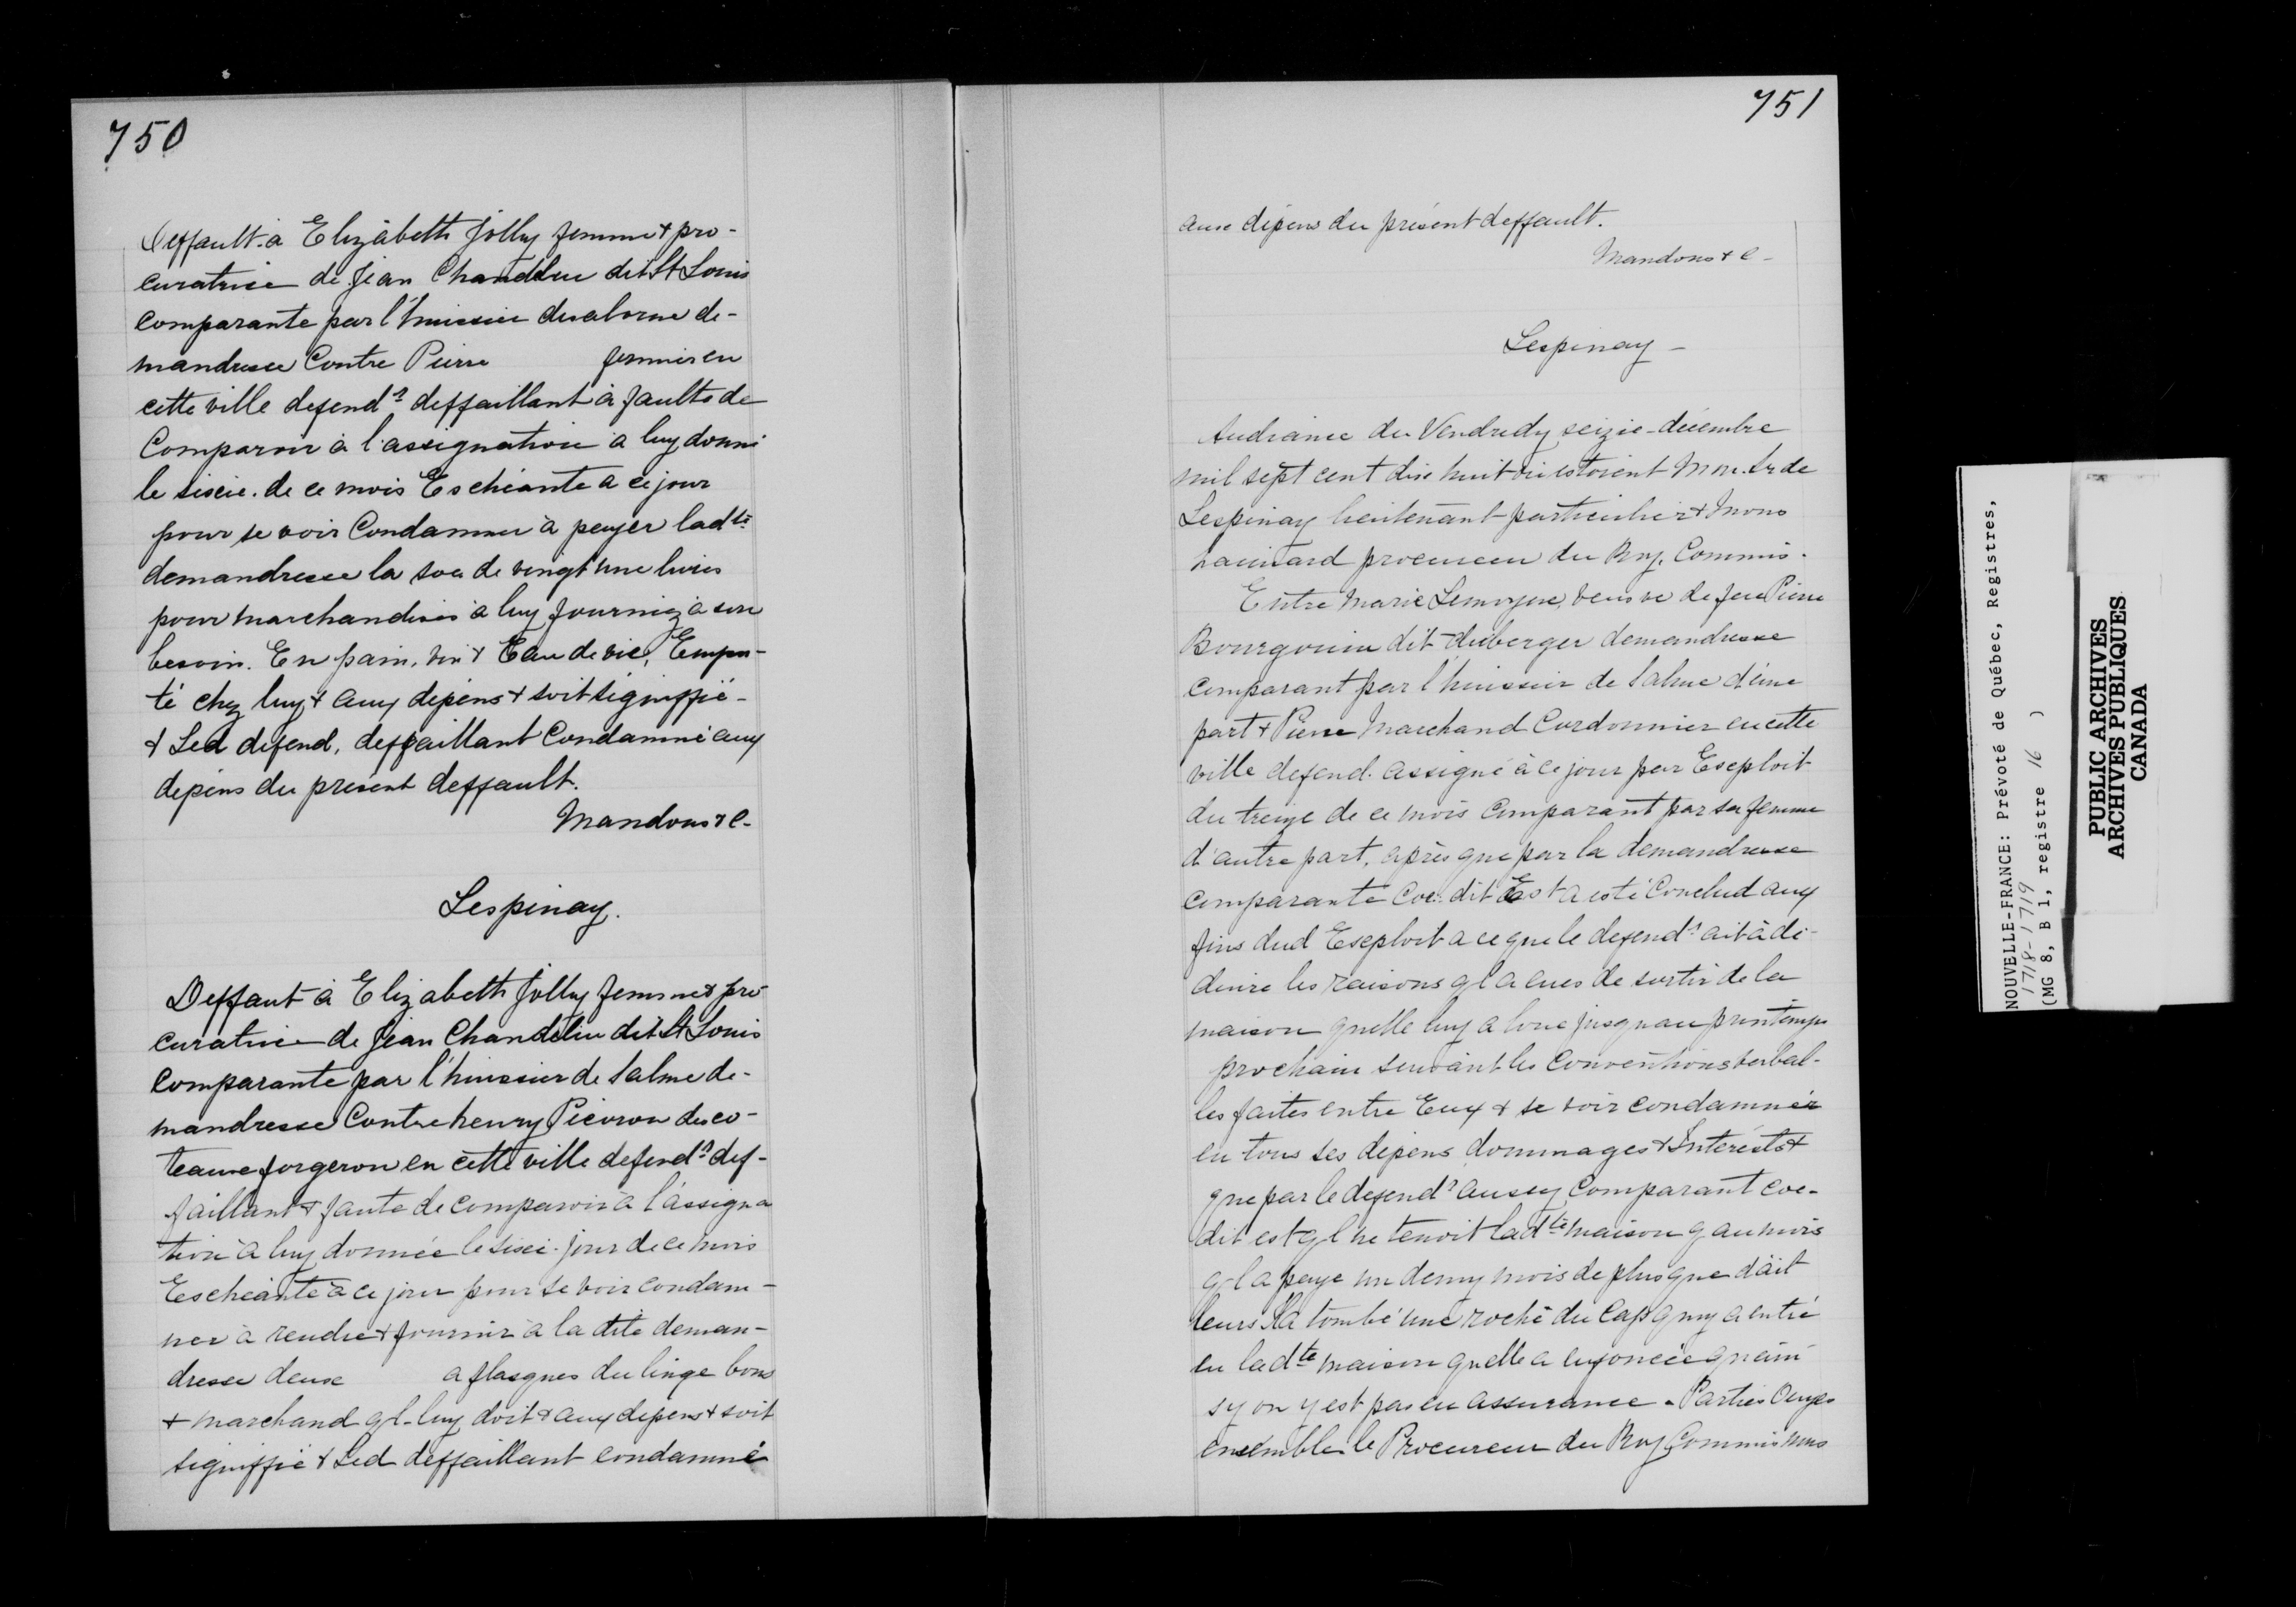 750
Deffault à Elizabeth Jolly femme & pro-
curatrice de Jean Chandelier dit St Louis
Comparante par l'huissier de
mandresse Contre Pierre fermier en
cette ville defendr deffaillant à faulte de
Comparoir à l'assignation a luy donné
le sixie. de ce mois Eschéante a ce jour
pour se voir Condamner à payer ladte
demandresse la soe de vingt une livres
pour marchandises à luy fourniz à son
besoin. En pain, vin & Eau de vie, Empor-
té chez luy & aux dépens & soit signiffié-
& Led défend. deffaillant Condamné aux
depéns du présent deffault.
Mandons & c-
Lespinay.
Deffaut à Elizabeth Jolly femme & pro-
curatrice de Jean Chandelier dit St Louis
Comparante par l'huissier de Salme de-
mandresse Contre henry Picoron desco-
teaux forgeron en cette ville defendr def-
faillant & faute de comparoir à l'assigna
tion à luy donnée le sixie. jour de ce mois
Eschéante à ce jour pour se voir condam-
ner à rendre & fournir à la dite deman-
dresse deux a flasques du linge bons
& marchand ql- luy doit & aux depens & soit
signiffié & Led deffaillant condamné
751
aux dépens du présent deffault.
Mandons & c-
Lespinay-
Audiance du Vendredy seizie-décembre
mil sept cent dix huit où estoient Mon. Sr de
Lespinay lieutenant-particulier & Mons
procureur du Roy. Commis.
Entre Marie Lemoyne, veusve de feu Pierre
Bourgouin dit-duberger demandresse
Comparant par l'huissier de Salme d'une
part & Pierre Marchand Cordonnier en cette
ville defend. assigné à ce jour par Exeploit
du treize de ce mois Comparant par sa femme
d'autre part, après que par la demandresse
comparante Coe. dit Est a esté Conclud aux
fins dud Exeploit a ce que le defendr ait à dé-
duire les raisons ql a eues de sortir de la
maison quelle luy a loué jusquau printemps
prochain suivant les Conventions verbal-
les faites entre Eux & se voir condamner
en tous ses dépens dommages & Interests &
que par le defendr aussy Comparant coe-
dit est ql ne tenoit ladte maison qau mois
ql a payé un demy mois de plus que dail
leurs Il a tombé une roche du Cap quy a entré
en ladte maison quelle a enfoncée quain
sy on y est pas en assurance - Parties Ouyes
ensemble le Procureur du Roy Commis nous
NOUVELLE-FRANCE: Prévoté de Québec, Registres,
1718-1719
(MG 8, B 1, registre 16 )
PUBLIC ARCHIVES
ARCHIVES PUBLIQUES
CANADA